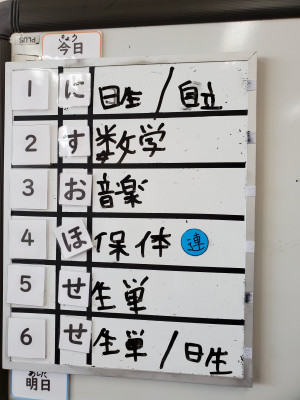 PLUS
きょう
今日
1 に 日生/自立
2 す 数学
3 お 音楽
4 ほ 保体 連
5 せ 生単
6 せ 生単/日生
あした
明日